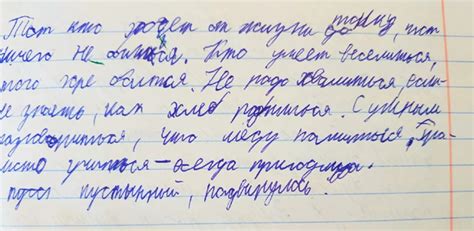 Тот кто хочет от жизни до тот
ничего не боится. Кто умеет веселиться,
того горе боится. Не надо хвалиться, если
не знаеть, как хлеб родиться. С умным
разговориться, что меду напиться. Гра-
мото учиться — всегда пригодица.
пустынный,